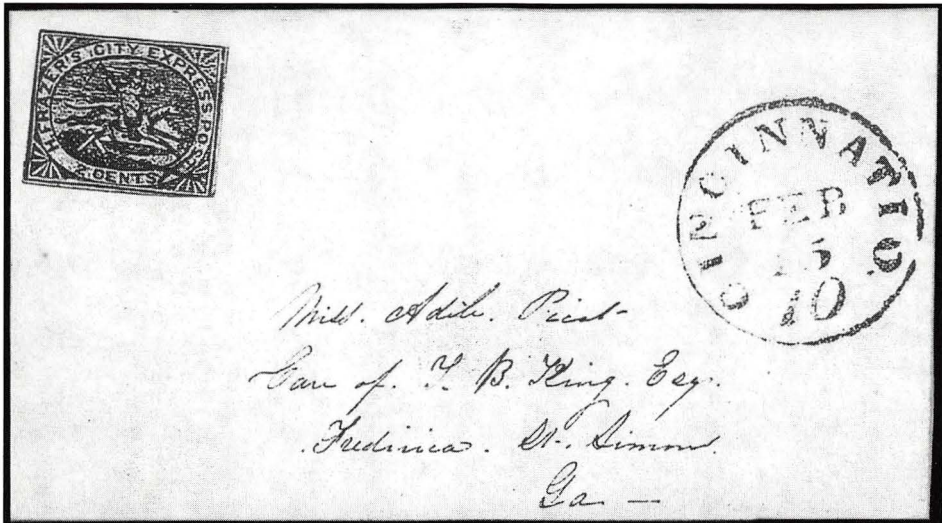 H. FRAZER'S CITY EXPRESS POST
2 CENTS
CINCINNATI O.
FEB
10
Miss. Adile.
Care of. T. B. King. Esq.
Frederica. St. Simon.
Ga —